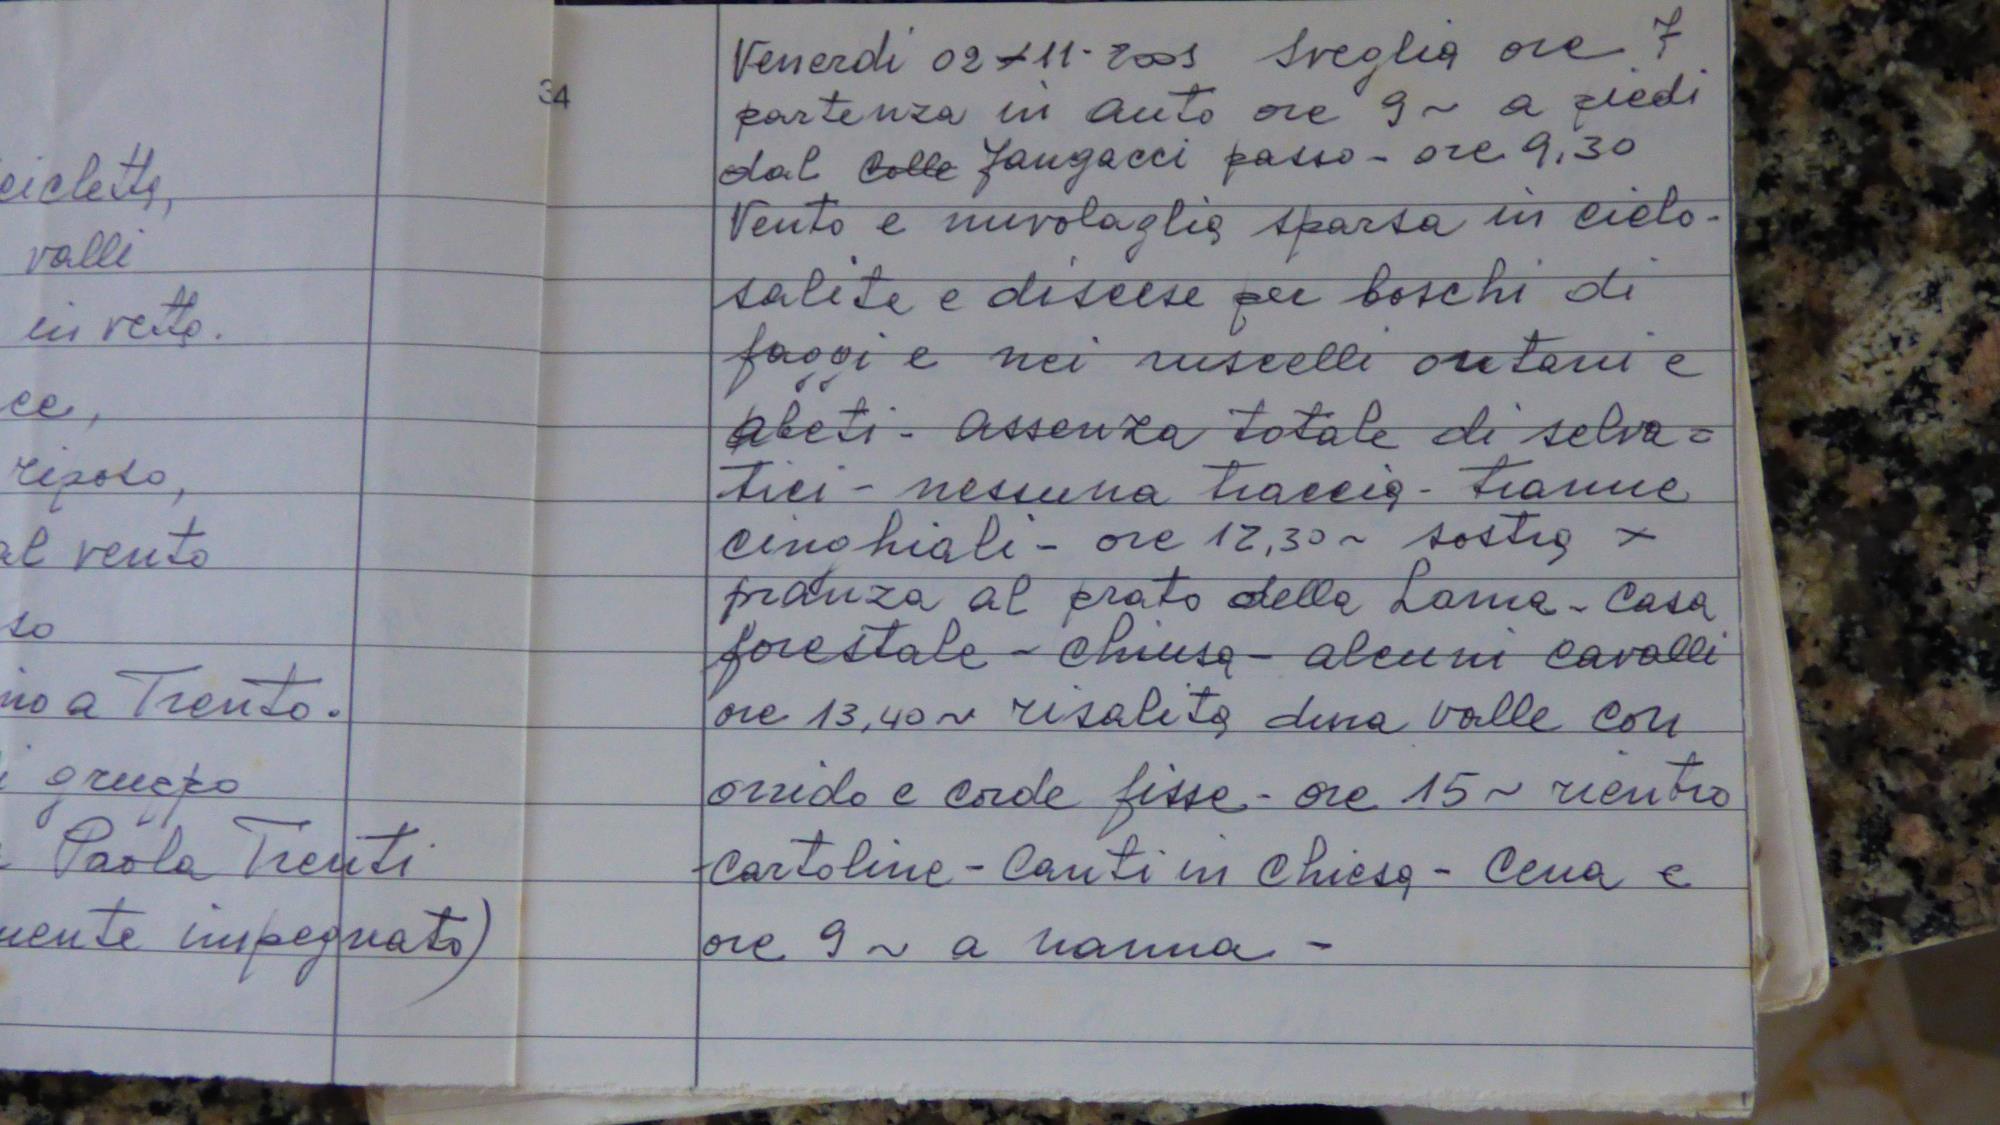 34
cicletta,
valli
in vetta.
ce,
riposo,
al vento
so
no a Trento.
i gruppo
Paola Trenti
mente impegnato)
Venerdi 02-11-2001 sveglia ore 7
partenza in auto ore 9 ~ a piedi
dal Colle Fangacci passo - ore 9,30
Vento e nuvolaglia sparsa in cielo -
salite e discese per boschi di
faggi e nei ruscelli ontani e
abeti - assenza totale di selva=
tici - nessuna traccia - tranne
cinghiali - ore 12,30 ~ sosta x
pranza al prato della Lama - Casa
forestale - chiusa - alcuni cavalli
ore 13,40 ~ risalita duna valle con
orrido e corde fisse - ore 15 ~ rientro
cartoline - Canti in Chiesa - Cena e
ore 9 ~ a nanna -